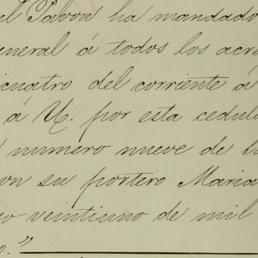 el Pavon ha mandado
eneral á todos los acre
icuatro del corriente á
á U. por esta cedula
numero nueve de la
on su portero Maria
o veintiuno de mil
o."